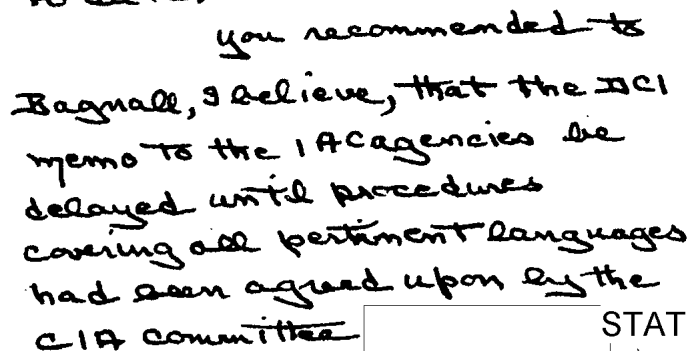 you recommended to
Bagnall, I believe, that the DCI
memo to the IAC agencies be
delayed until procedures
covering all pertinent languages
had been agreed upon by the
CIA committee
STAT